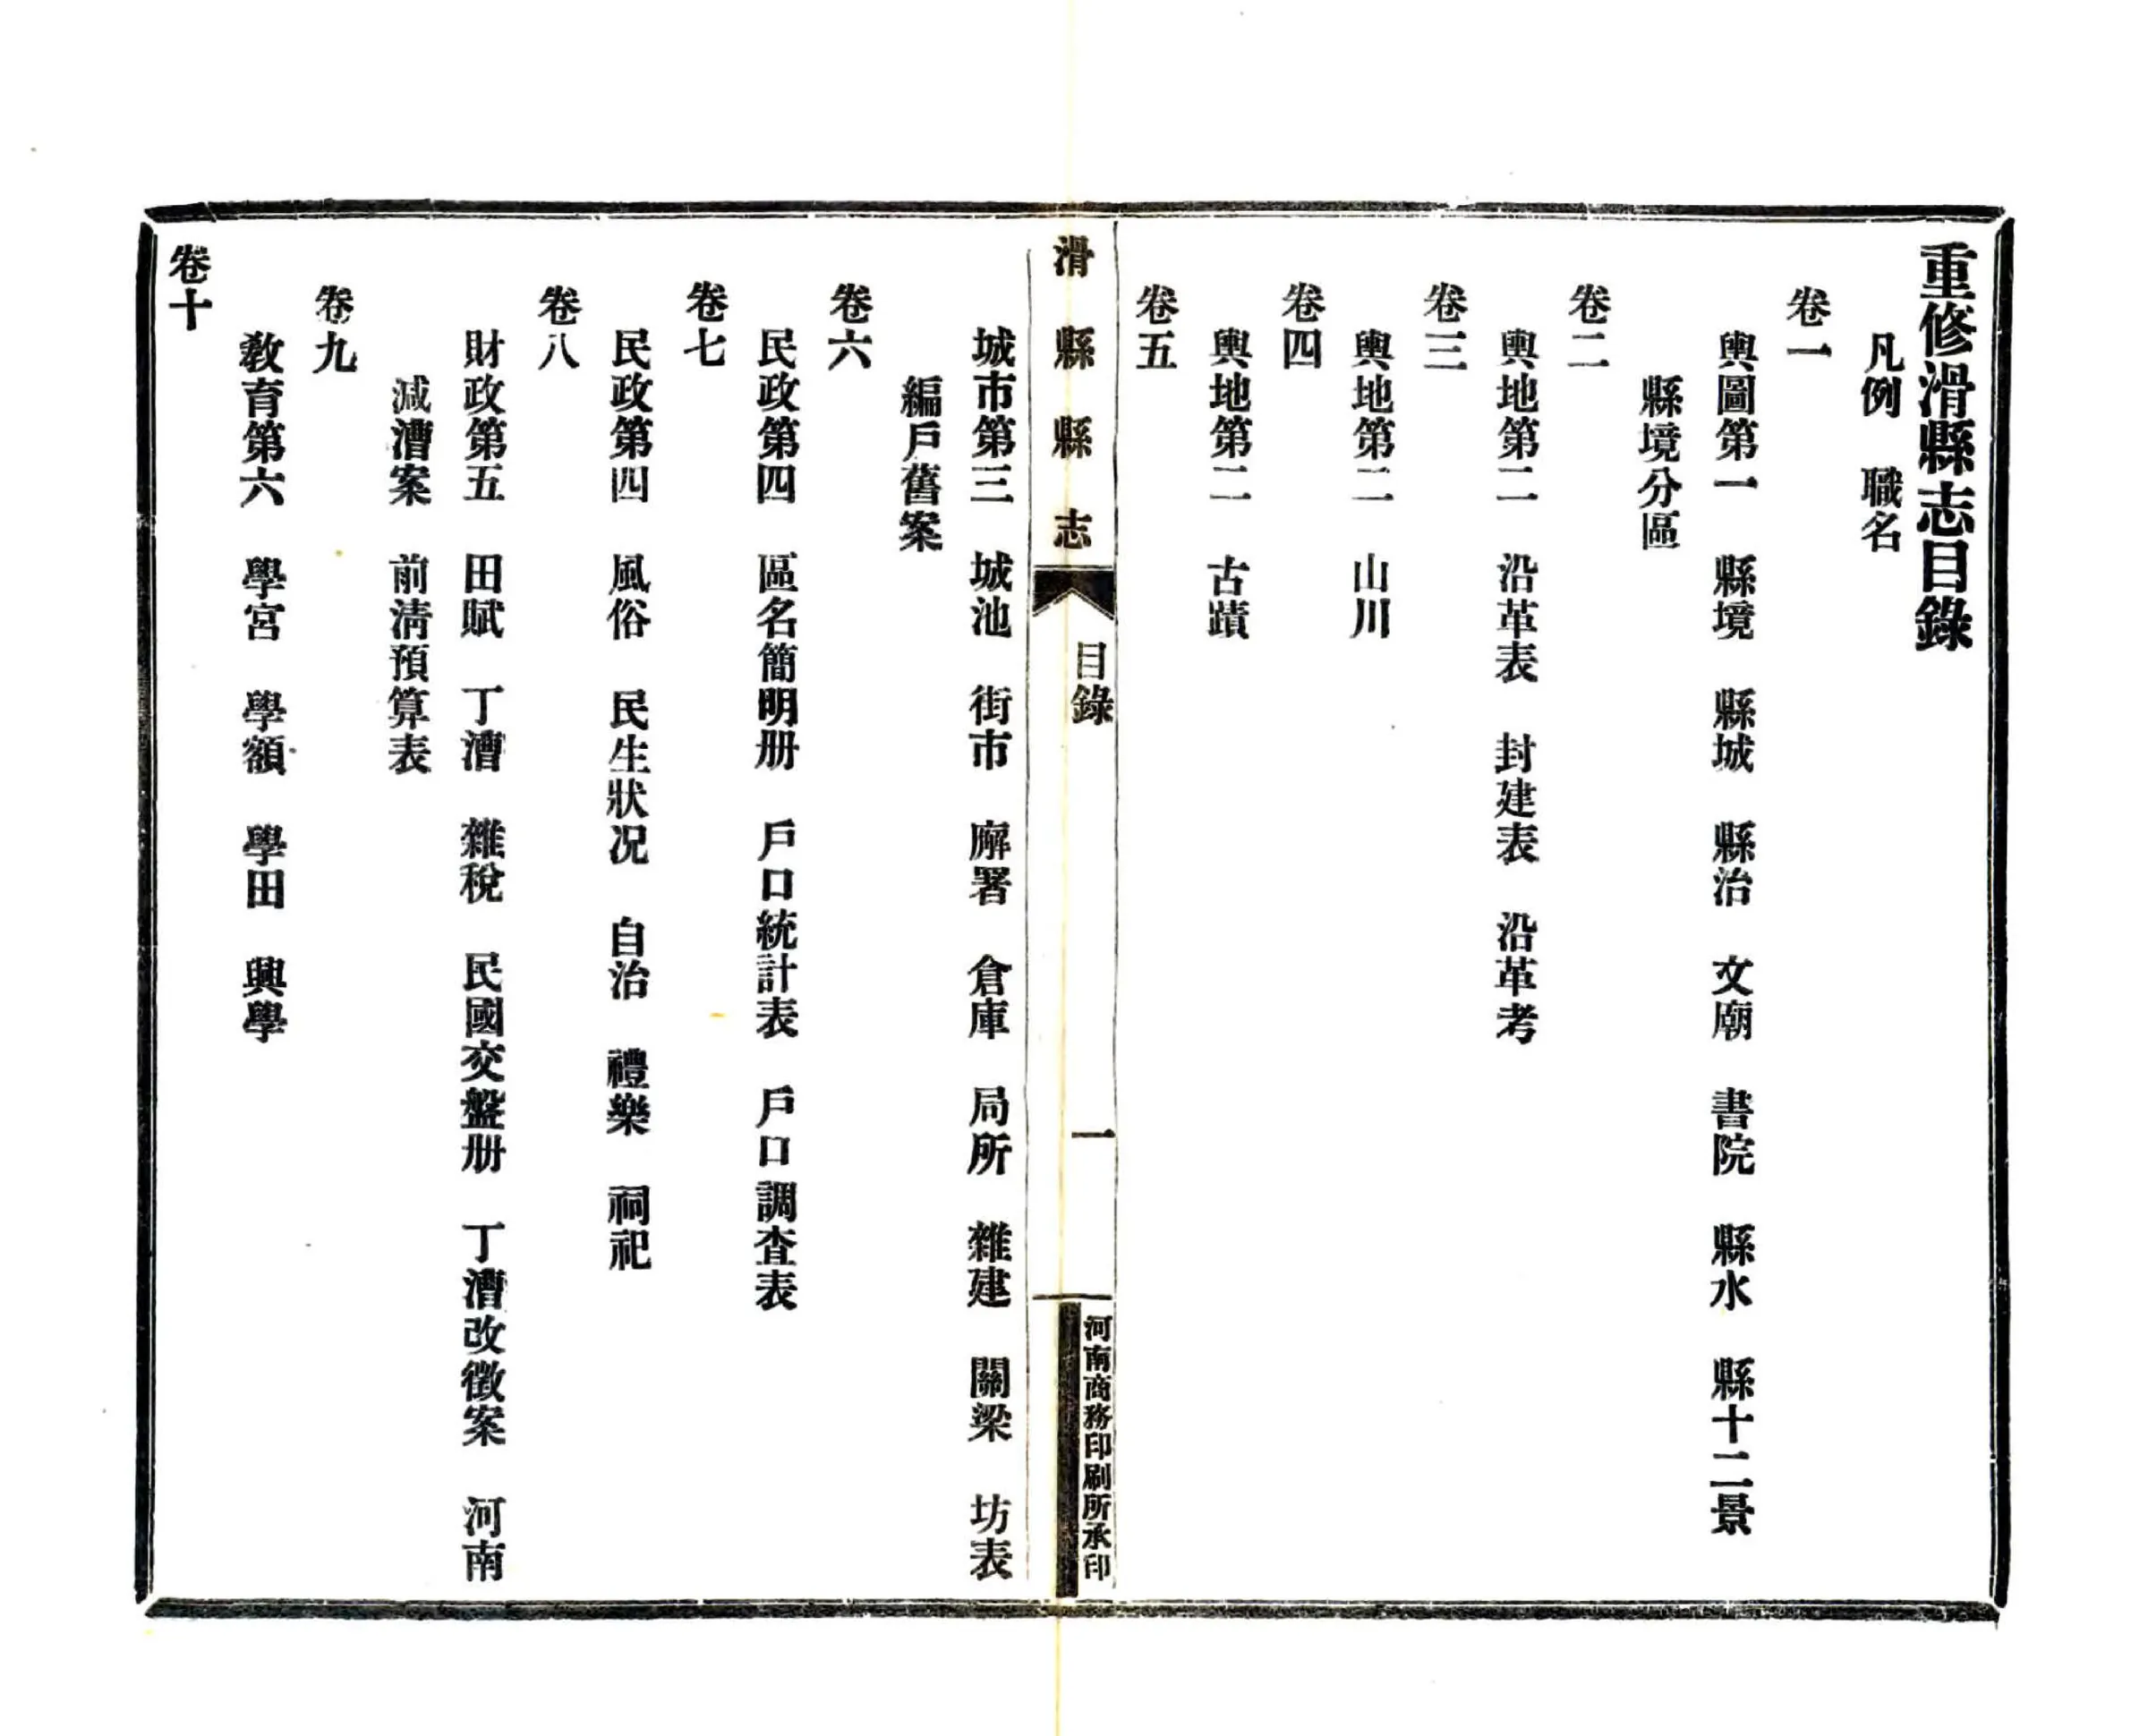 重修滑縣志目錄
凡例　職名
卷一
輿圖第一　縣境　縣城　縣治　文廟　書院　縣水　縣十二景
縣境分區
卷二
輿地第二　沿革表　封建表　沿革考
卷三
輿地第二　山川
卷四
輿地第二　古蹟
卷五
滑縣縣志
目錄
一
河南商務印刷所承印
城市第三　城池　街市　廨署　倉庫　局所　雜建　關梁　坊表
編戶舊案
卷六
民政第四　區名簡明册　戶口統計表　戶口調查表
卷七
民政第四　風俗　民生狀况　自治　禮樂　祠祀
卷八
財政第五　田賦　丁漕　雜稅　民國交盤册　丁漕改徵案　河南
減漕案　前清預算表
卷九
教育第六　學宮　學額　學田　興學
卷十